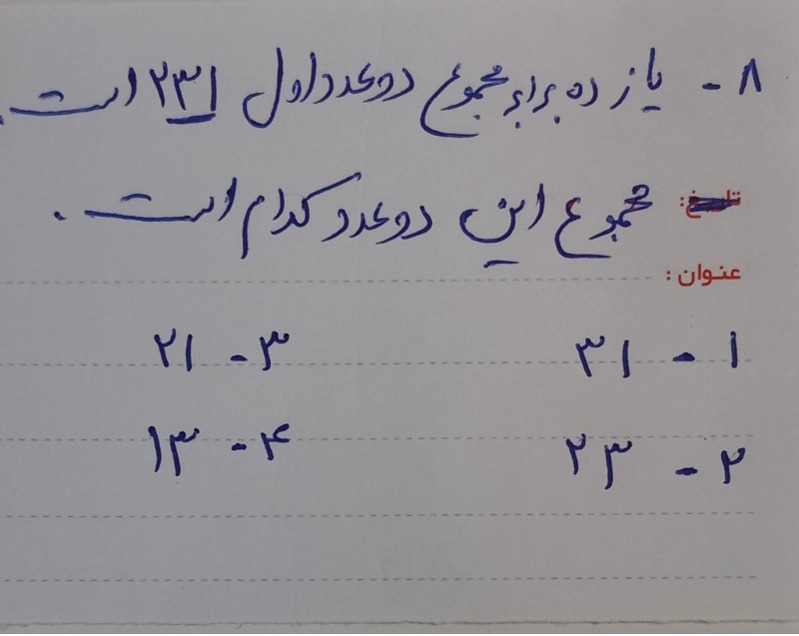 ۸ - یازده برابر مجموع دو عدد اول ۲۳۱ است.
تاریخ: مجموع این دو عدد کدام است.
عنوان:
۱ - ۳۱ ۳ - ۲۱
۲ - ۲۳ ۴ - ۱۳